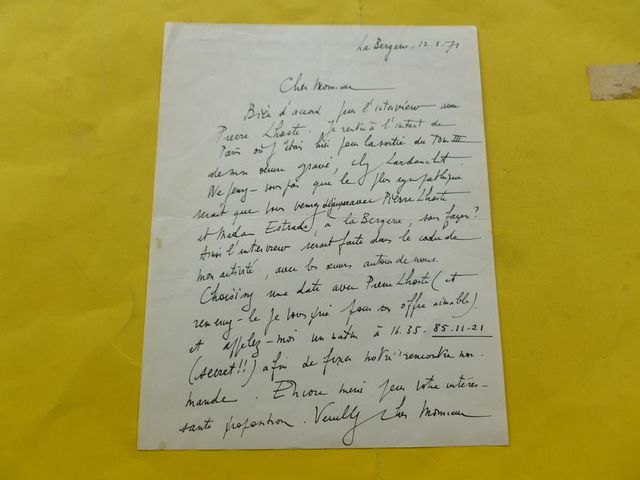 La Bergerie. 12.5.71
Cher Monsieur
Bien d'accord pour l'interview avec
Pierre Lhoste. Je rentre à l'instant de
Paris où j'étais hier pour la sortie du Tom III
de mon œuvre gravé, chez
Ne pensez-vous pas que le plus sympathique
serait que vous veniez déjeuner avec Pierre Lhoste
et Madam Estrade, à la Bergerie, sans façon?
Ainsi l'interview serait faite dans le cadre de
mon activité, avec les œuvres autour de nous.
Choisissez une date avec Pierre Lhoste (et
remerciez-le je vous prie pour son offre aimable)
et appelez-moi un matin à 16.35. 85.11-21
(secret!!) afin de fixer notre rencontre nor-
mande. Encore merci pour votre intéres-
sante proposition. Veuillez Cher Monsieur